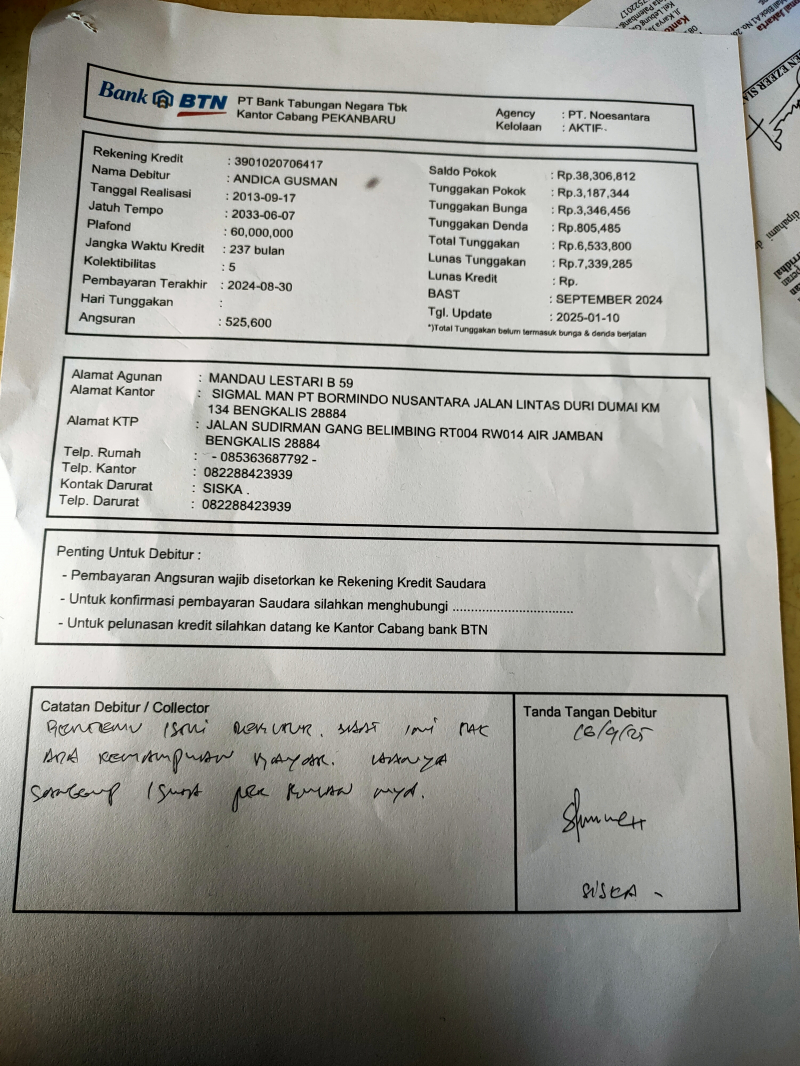 Bank BTN
PT Bank Tabungan Negara Tbk
Kantor Cabang PEKANBARU
Agency : PT. Noesantara
Kelolaan : AKTIF
Rekening Kredit : 3901020706417
Nama Debitur : ANDICA GUSMAN
Tanggal Realisasi : 2013-09-17
Jatuh Tempo : 2033-06-07
Plafond : 60,000,000
Jangka Waktu Kredit : 237 bulan
Kolektibilitas : 5
Pembayaran Terakhir : 2024-08-30
Hari Tunggakan :
Angsuran : 525,600
Saldo Pokok : Rp.38,306,812
Tunggakan Pokok : Rp.3,187,344
Tunggakan Bunga : Rp.3,346,456
Tunggakan Denda : Rp.805,485
Total Tunggakan : Rp.6,533,800
Lunas Tunggakan : Rp.7,339,285
Lunas Kredit : Rp.
BAST : SEPTEMBER 2024
Tgl. Update : 2025-01-10
*)Total Tunggakan belum termasuk bunga & denda berjalan
Alamat Agunan : MANDAU LESTARI B 59
Alamat Kantor : SIGMAL MAN PT BORMINDO NUSANTARA JALAN LINTAS DURI DUMAI KM
134 BENGKALIS 28884
Alamat KTP : JALAN SUDIRMAN GANG BELIMBING RT004 RW014 AIR JAMBAN
BENGKALIS 28884
Telp. Rumah : - 085363687792 -
Telp. Kantor : 082288423939
Kontak Darurat : SISKA .
Telp. Darurat : 082288423939
Penting Untuk Debitur :
- Pembayaran Angsuran wajib disetorkan ke Rekening Kredit Saudara
- Untuk konfirmasi pembayaran Saudara silahkan menghubungi ................................
- Untuk pelunasan kredit silahkan datang ke Kantor Cabang bank BTN
Catatan Debitur / Collector
istri debitur. saat ini tak
ada kemampuan bayar. hanya
sanggup per bulan nya.
Tanda Tangan Debitur
SISKA -